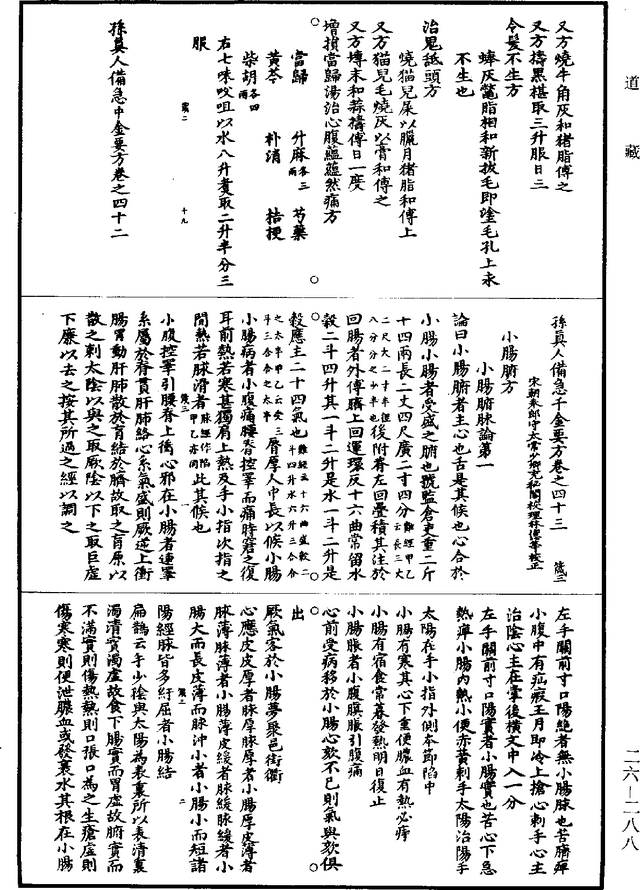 道藏
又方燒牛角灰和猪脂傅之
又方擣黑椹取三升服日三
令髮不生方
蜯灰鼈脂相和新拔毛即塗毛孔上永
不生也
治鬼舐頭方
燒猫兒屎以臘月猪脂和傅上
又方猫兒毛燒灰以膏和傅之
又方塼末和蒜擣傅日一度
增損當歸湯治心腹蘊蘊然痛方
當歸 升麻各三兩 芍藥
黃芩 朴消 桔梗
柴胡各四兩
右七味㕮咀以水八升煮取二升半分三
服
孫真人備急千金要方卷之四十二
孫真人備急千金要方卷之四十三
宋朝奉郎守太常少卿充秘閣校理林億等校正
小腸腑方
小腸腑脉論第一
論曰小腸腑者主心也舌是其候也心合於
小腸小腸者受盛之腑也號監倉吏重二斤
十四兩長二丈四尺廣二寸四分
後附脊左回疊積其注於
回腸者外傅臍上回運環反十六曲常留水
穀二斗四升其一斗二升是水一斗二升是
穀應主二十四氣也
脣厚人中長以候小腸
小腸病者小腹痛腰脊控睪而痛時窘之復
耳前熱若寒甚獨肩上熱及手小指次指之
間熱若脉滑者此其候也
小腹控睪引腰脊上衝心邪在小腸者連睪
系屬於脊貫肝肺絡心系氣盛則厥逆上衝
腸胃動肝肺散於肓結於臍故取之肓原以
散之刺太陰以與之取厥陰以下之取巨虛
下廉以去之按其所過之經以調之
左手關前寸口陽絕者無小腸脉也苦臍痺
小腹中有疝瘕王月即冷上搶心刺手心主
治陰心主在掌後橫文中入一分
左手關前寸口陽實者小腸實也苦心下急
熱痺小腸內熱小便赤黃刺手太陽治陽手
太陽在手小指外側本節陷中
小腸有寒其心下重便膿血有熱必痔
小腸有宿食常暮發熱明日復止
小腸脹者小腹䐜脹引腹痛
心前受病移於小腸心欬不已則氣與欬俱
出
厥氣客於小腸夢聚邑街衢
心應皮皮厚者脉厚脉厚者小腸厚皮薄者
脉薄脉薄者小腸薄皮緩者脉緩脉緩者小
腸大而長皮薄而脉沖小者小腸小而短諸
陽經脉皆多紆屈者小腸結
扁鵲云手少陰與太陽為表裏所以表清裏
濁清實濁虛故食下腸實而胃虛故腑實而
不滿實則傷熱熱則口張口為之生瘡虛則
傷寒寒則便泄膿血或發裏水其根在小腸
二六—二八八